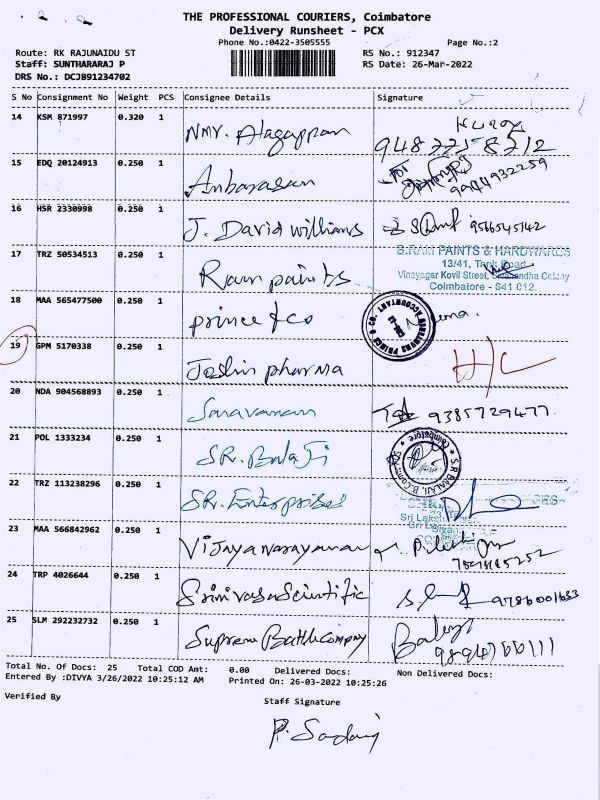 THE PROFESSIONAL COURIERS, Coimbatore
Delivery Runsheet - PCX
Phone No.:0422-3505555
Page No.:2
Route: RK RAJUNAIDU ST
RS No.: 912347
Staff: SUNTHARARAJ P
RS Date: 26-Mar-2022
DRS No.: DCJ891234702
S No Consignment No Weight PCS Consignee Details Signature
14 KSM 871997 0.320 1 NMV. Alagappan
15 EDQ 20124913 0.250 1 Anbarasan 9944932259
16 HSR 2330998 0.250 1 J. David williams 9566545142
17 TRZ 50534513 0.250 1 Ram paints
B.RAM PAINTS & HARDWARES
13/41, Tank Road
Vinayagar Kovil Street,
Coimbatore - 641 012.
18 MAA 565477500 0.250 1 prince & co
19 GPM 5170338 0.250 1 Joslin pharma
20 NDA 904568893 0.250 1 Saravanan 9385729477
21 POL 1333234 0.250 1 SR. BalaJi
22 TRZ 113238296 0.250 1 SR. Enterprises
23 MAA 566842962 0.250 1 Vijayanarayanan
24 TRP 4026644 0.250 1 Srinivasa Scientific
25 SLM 292232732 0.250 1 Supreme
Total No. Of Docs: 25 Total COD Amt: 0.00 Delivered Docs: Non Delivered Docs:
Entered By :DIVYA 3/26/2022 10:25:12 AM Printed On: 26-03-2022 10:25:26
Verified By
Staff Signature